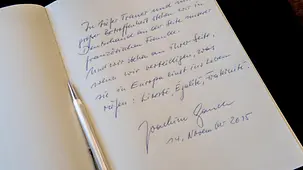 In tiefer Trauer und mit
großer Betroffenheit stehen wir in
Deutschland an der Seite unserer
französischen Freunde.
Und wir stehen an ihrer Seite,
wenn wir verteidigen, was
sie in Europa einst ins Leben
riefen: Liberté, Egalité, Fraternité.
Joachim Gauck
14. November 2015